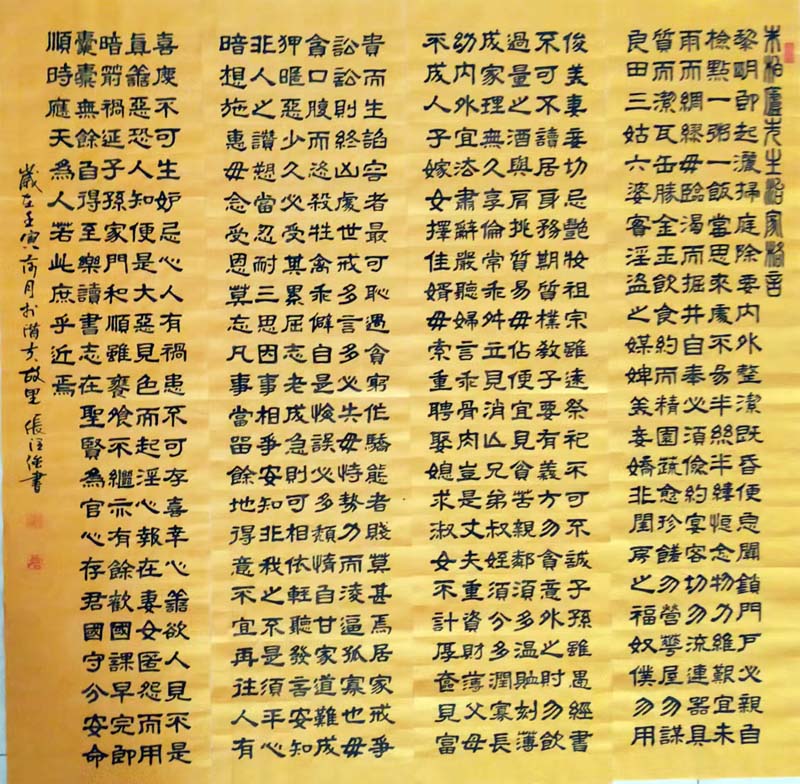 朱柏廬先生治家格言
黎明即起灑掃庭除要内外整潔既昏便息關鎖門戶必親自
檢點一粥一飯當思來處不易半絲半縷恒念物力維艱宜未
雨而綢繆毋臨渴而掘井自奉必須儉約宴客切勿流連器具
質而潔瓦缶勝金玉飲食約而精園蔬愈珍饈勿營華屋勿謀
良田三姑六婆實淫盜之媒婢美妾嬌非閨房之福奴僕勿用
俊美妻妾切忌艷妝祖宗雖遠祭祀不可不誠子孫雖愚經書
不可不讀居身務期質樸教子要有義方勿貪意外之財勿飲
過量之酒與肩挑貿易毋佔便宜見貧苦親鄰須多溫卹刻薄
成家理無久享倫常乖舛立見消亡兄弟叔姪須分多潤寡長
幼内外宜法肅辭嚴聽婦言乖骨肉豈是丈夫重資財薄父母
不成人子嫁女擇佳婿毋索重聘娶媳求淑女不計厚奩見富
貴而生諂容者最可恥遇貧窮作驕態者賤莫甚焉居家戒爭
訟訟則終凶處世戒多言多必失毋恃勢力而淩逼孤寡也毋
貪口腹而恣殺牲禽乖僻自是悔誤必多頹惰自甘家道難成
狎暱惡少久必受其累屈志老成急則可相依輕聽發言安知
非人之譖愬當忍耐三思因事相爭安知非我之不是須平心
暗想施惠毋念受恩莫忘凡事當留餘地得意不宜再往人有
喜慶不可生妒忌心人有禍患不可存喜幸心善欲人見不是
眞善惡恐人知便是大惡見色而起淫心報在妻女匿怨而用
暗箭禍延子孫家門和順雖饔飧不繼亦有餘歡國課早完即
囊橐無餘自得至樂讀書志在聖賢為官心存君國守分安命
順時應天為人若此庶乎近焉
歲在壬寅荷月於故里張書